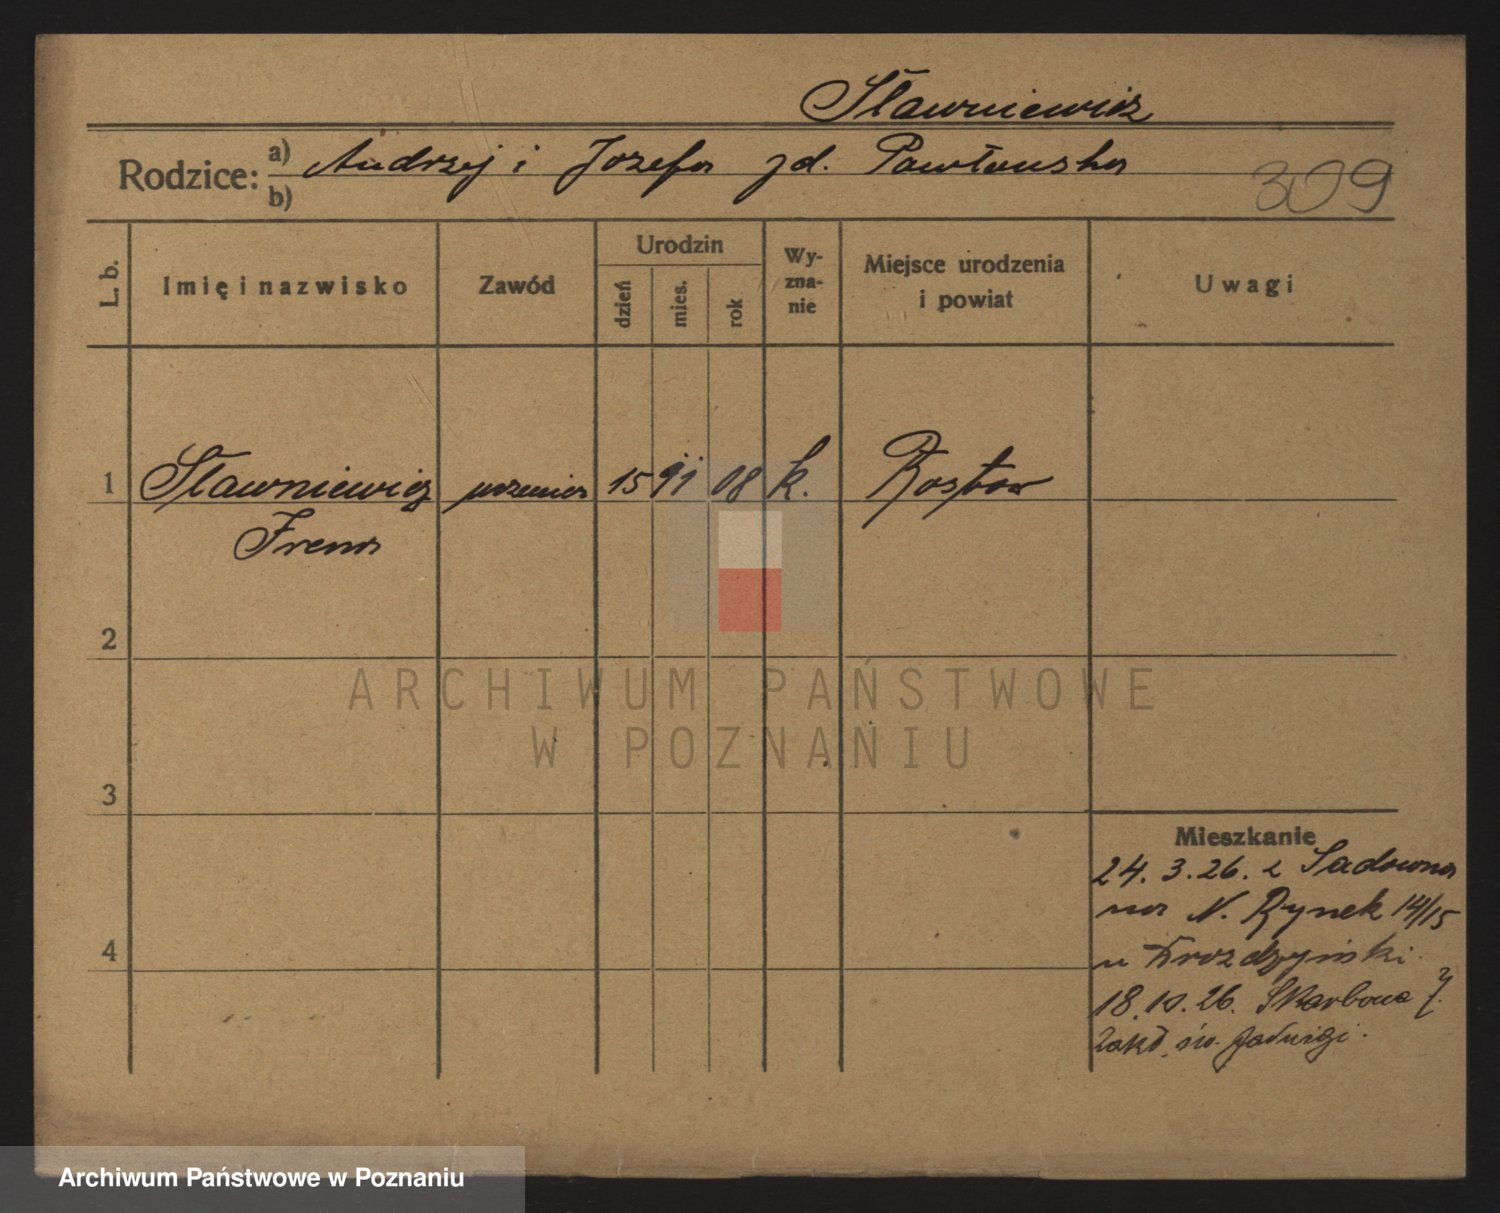 Sławniewicz
Rodzice: a) Andrzej i Józefa zd. Pawłowska
b)
309
L. b. Imię i nazwisko Zawód Urodzin dzień mies. rok Wyznanie Miejsce urodzenia i powiat Uwagi
1 Sławniewicz uczenica 15 08 k. Rostow
Irena
2
3
Mieszkanie
24. 3. 26. z Sadowna
na N. Rynek 14/15
4
u Drozdzyński.
18. 10. 26. Skarbowa 7.
Zakł. św. Jadwigi.
ARCHIWUM PAŃSTWOWE
W POZNANIU
Archiwum Państwowe w Poznaniu